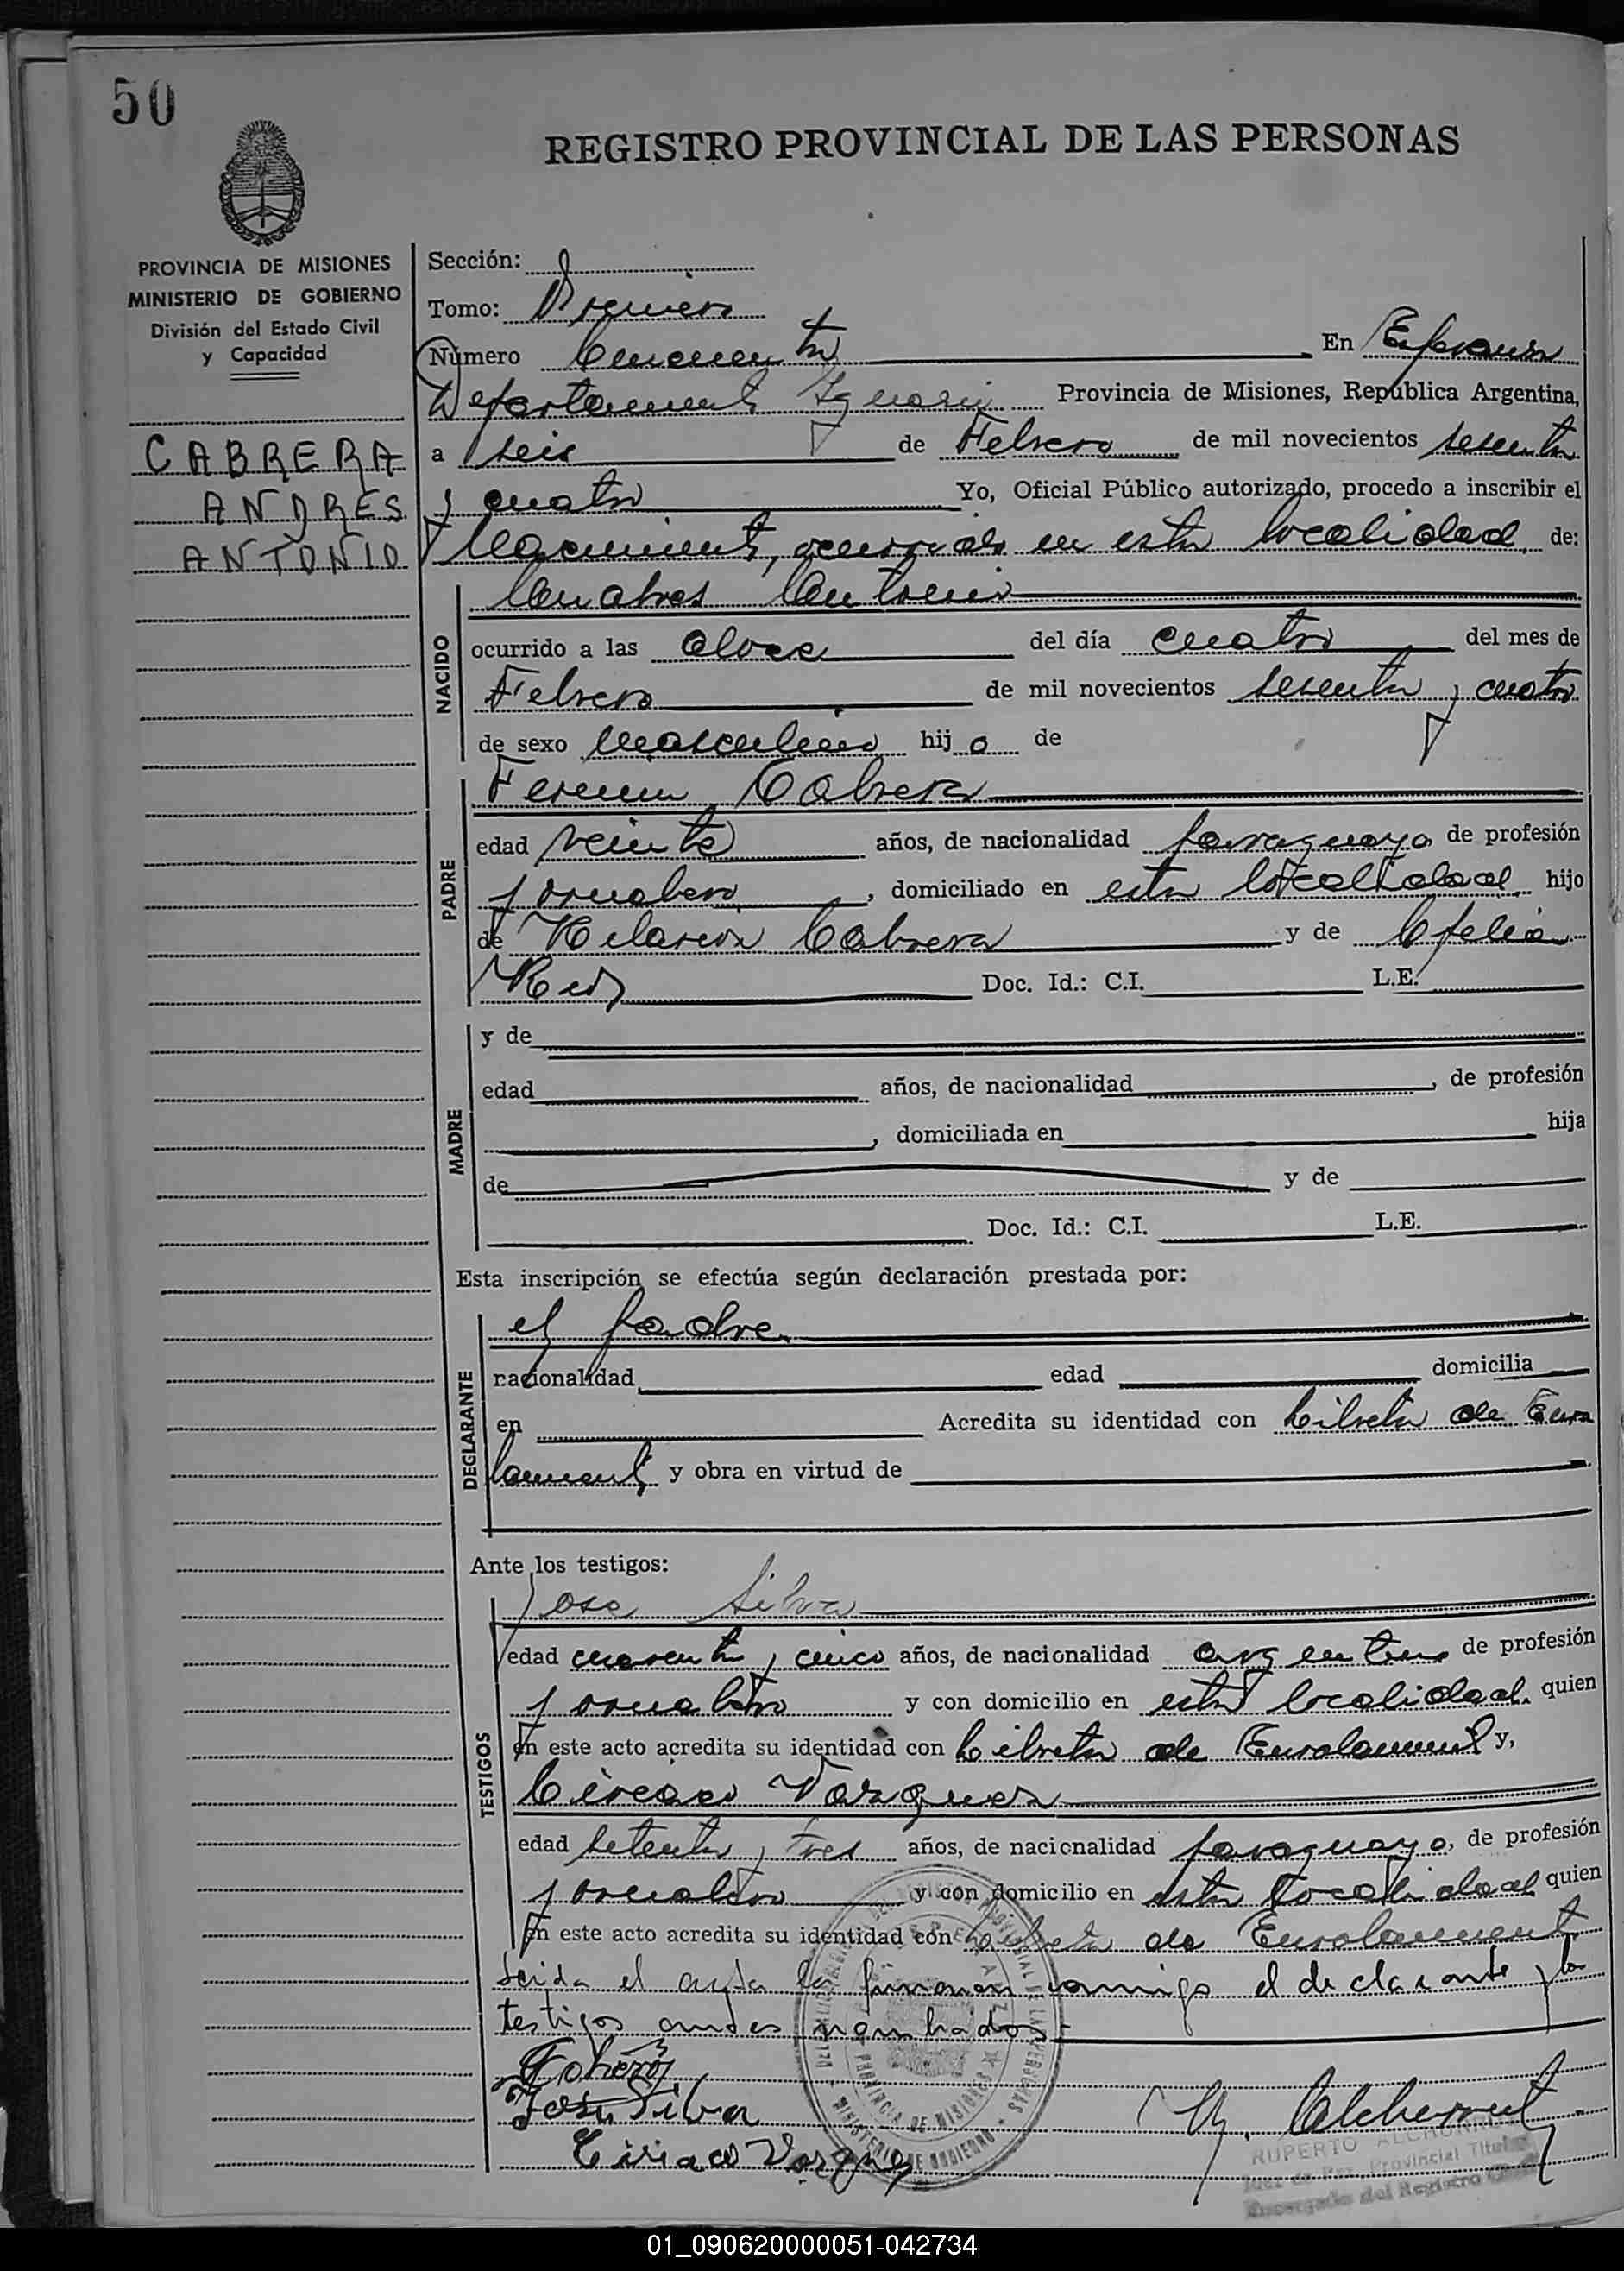 50
REGISTRO PROVINCIAL DE LAS PERSONAS
PROVINCIA DE MISIONES
MINISTERIO DE GOBIERNO
División del Estado Civil
y Capacidad
CABRERA
ANDRES
ANTONIO
Sección:
Tomo: Primero
Número Cincuenta En Esperanza
Departamento Iguazú Provincia de Misiones, República Argentina,
a seis de Febrero de mil novecientos sesenta
y cuatro Yo, Oficial Público autorizado, procedo a inscribir el
Nacimiento, ocurrido en esta localidad de:
NACIDO
Andres Antonio
ocurrido a las doce del día cuatro del mes de
Febrero de mil novecientos sesenta y cuatro
de sexo masculino hijo de
PADRE
Fermin Cabrera
edad veinte años, de nacionalidad paraguayo de profesión
jornalero, domiciliado en esta localidad hijo
de Hilarion Cabrera y de Ofelia
Doc. Id.: C.I. L.E.
MADRE
y de
edad años, de nacionalidad , de profesión
, domiciliada en hija
de y de
Doc. Id.: C.I. L.E.
Esta inscripción se efectúa según declaración prestada por:
DECLARANTE
el padre
nacionalidad edad domicilia
en Acredita su identidad con Libreta de Enro
lamiento y obra en virtud de
Ante los testigos:
TESTIGOS
Jose Silva
edad cuarenta y cinco años, de nacionalidad argentino de profesión
jornalero y con domicilio en esta localidad quien
en este acto acredita su identidad con Libreta de Enrolamiento y,
Ciriaco Vazquez
edad setenta y tres años, de nacionalidad paraguayo, de profesión
jornalero y con domicilio en esta localidad quien
en este acto acredita su identidad con Libreta de Enrolamiento
Leida el acta la firman conmigo el declarante y los
testigos antes nombrados.-
José Silva
Ciriaco Vazquez
RUPERTO
Juez de Paz Provincial Titular
Encargado del Registro Civil
PROVINCIA DE MISIONES
MINISTERIO DE GOBIERNO
01_090620000051-042734